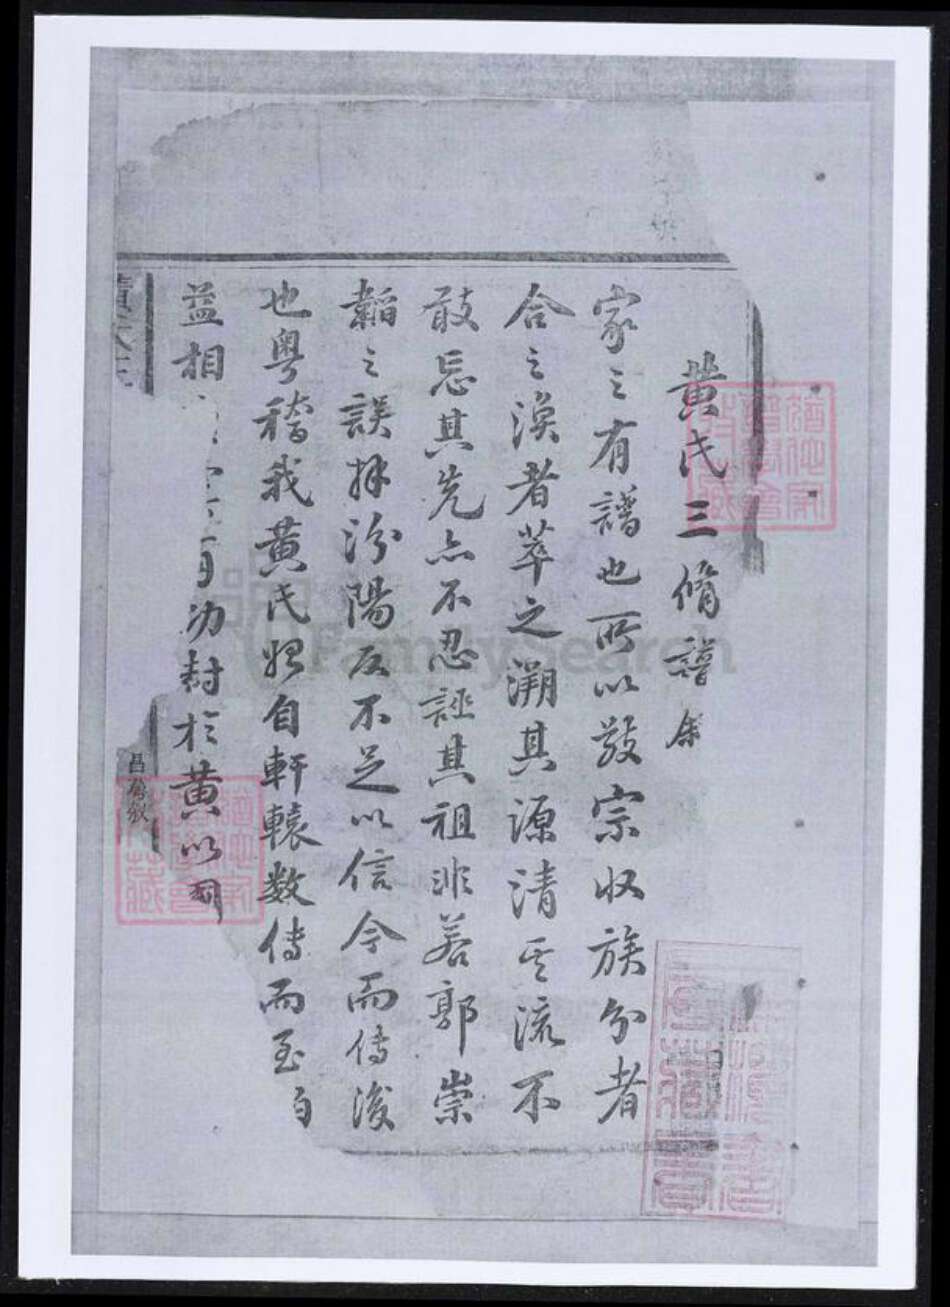 黃氏三脩譜序
家之有譜也所以敬宗收族分者
合之渙者萃之溯其源清其流不
敢忘其先亦不忍誣其祖非若郭崇
韜之誤拜汾陽反不足以信今而傳後
也粵稽我黃氏始自軒轅数傳而至伯
益相 有功封於黃以國
昌 叙
FamilySearch